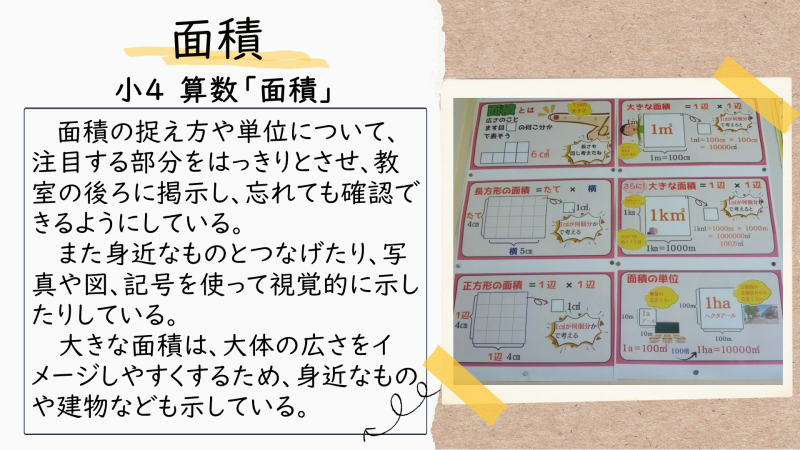 面積
小4 算数「面積」
面積の捉え方や単位について、
注目する部分をはっきりとさせ、教
室の後ろに掲示し、忘れても確認で
きるようにしている。
また身近なものとつなげたり、写
真や図、記号を使って視覚的に示し
たりしている。
大きな面積は、大体の広さをイ
メージしやすくするため、身近なもの
や建物なども示している。
面積とは
広さのこと
ます目□の何こ分か
で表そう
6㎠
大きな面積 =1辺 × 1辺
1㎡
1㎡=100㎝ × 100㎝
= 10000㎠
1m=100㎝
長方形の面積 =たて × 横
たて
4㎝
横 5㎝
1㎠
1㎠が何個分か
で考える
さらに!大きな面積 =1辺 × 1辺
1km
1k㎡
1k㎡=1000m × 1000m
= 1000000㎡
1km=1000m
正方形の面積 =1辺 × 1辺
1辺
4㎝
1辺 4㎝
1㎠
1㎠が何個分か
で考える
面積の単位
10m
1a
アール
10m
100m
1ha
ヘクタアール
100m
1a=100㎡
100倍
1ha=10000㎡